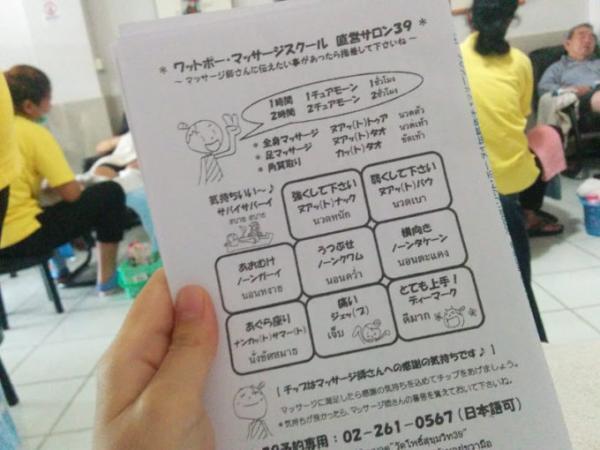 * ワットポー・マッサージスクール 直営サロン39 *
～ マッサージ師さんに伝えたい事があったら指差して下さいね ～
1時間 1チュアモーン 1ชั่วโมง
2時間 2チュアモーン 2ชั่วโมง
* 全身マッサージ ヌアッ(ト)トゥア นวดตัว
* 足マッサージ ヌアッ(ト)タオ นวดเท้า
* 角質取り カッ(ト)タオ ขัดเท้า
気持ちいい～♪
サバイサバーイ
สบาย สบาย
強くして下さい
ヌアッ(ト)ナック
นวดหนัก
弱くして下さい
ヌアッ(ト)バウ
นวดเบา
あおむけ
ノーンガーイ
นอนหงาย
うつぶせ
ノーンクワム
นอนคว่ำ
横向き
ノーンタケーン
นอนตะแคง
あぐら座り
ナンカッ(ト)サマー(ト)
นั่งขัดสมาธ
痛い
ジェッ(プ)
เจ็บ
とても上手！
ディーマーク
ดีมาก
[ チップはマッサージ師さんへの感謝の気持ちです♪ ]
マッサージに満足したら感謝の気持ちを込めてチップをあげましょう。
*気持ちが良かったら、マッサージ師さんの番号を覚えておいて下さいね。
予約専用：02-261-0567 (日本語可)
"วัดโพธิ์สุขุมวิท39"